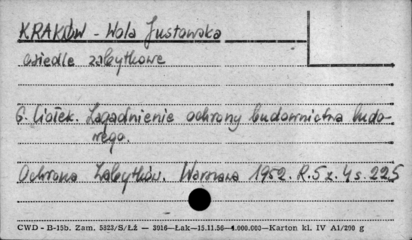 KRAKÓW - Wola Justowska
osiedle zabytkowe
G. Ciołek. Zagadnienie ochrony budownictwa ludo-
wego.
Ochrona Zabytków. Warszawa 1952. R. 5 z. 4 s. 225
CWD - B-15b. Zam. 5323/S/Łż — 3916—Łak—15.11.56—4.000.000—Karton kl. IV A1/290 g